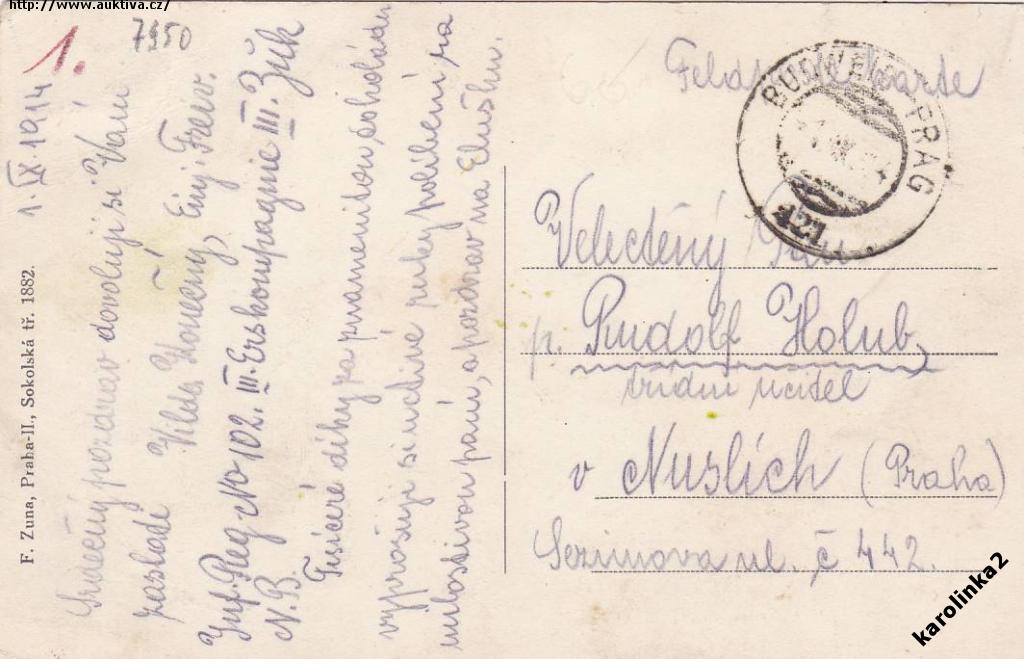 http://www.auktiva.cz/
1.
7950
1. IX. 1914
Srdečný pozdrav dovoluji si Vám
zaslati Vilda Konečný, Einj. Freiw.
Inf. Reg. No 102. III. Erskompagnie III. Zük
N. B. Tisíceré díky za znamenitou čokoládu
vyprošuji si uctivé ruky políbení na
milostivou paní, a pozdrav na Elušku.
F. Zuna, Praha-II., Sokolská tř. 1882.
Feldpostkarte
BUDWEIS PRAG
Velectěný Pan
p. Rudolf Holub,
řídící učitel
v Nuslích (Praha)
Sezimova ul. č 442.
karolinka2